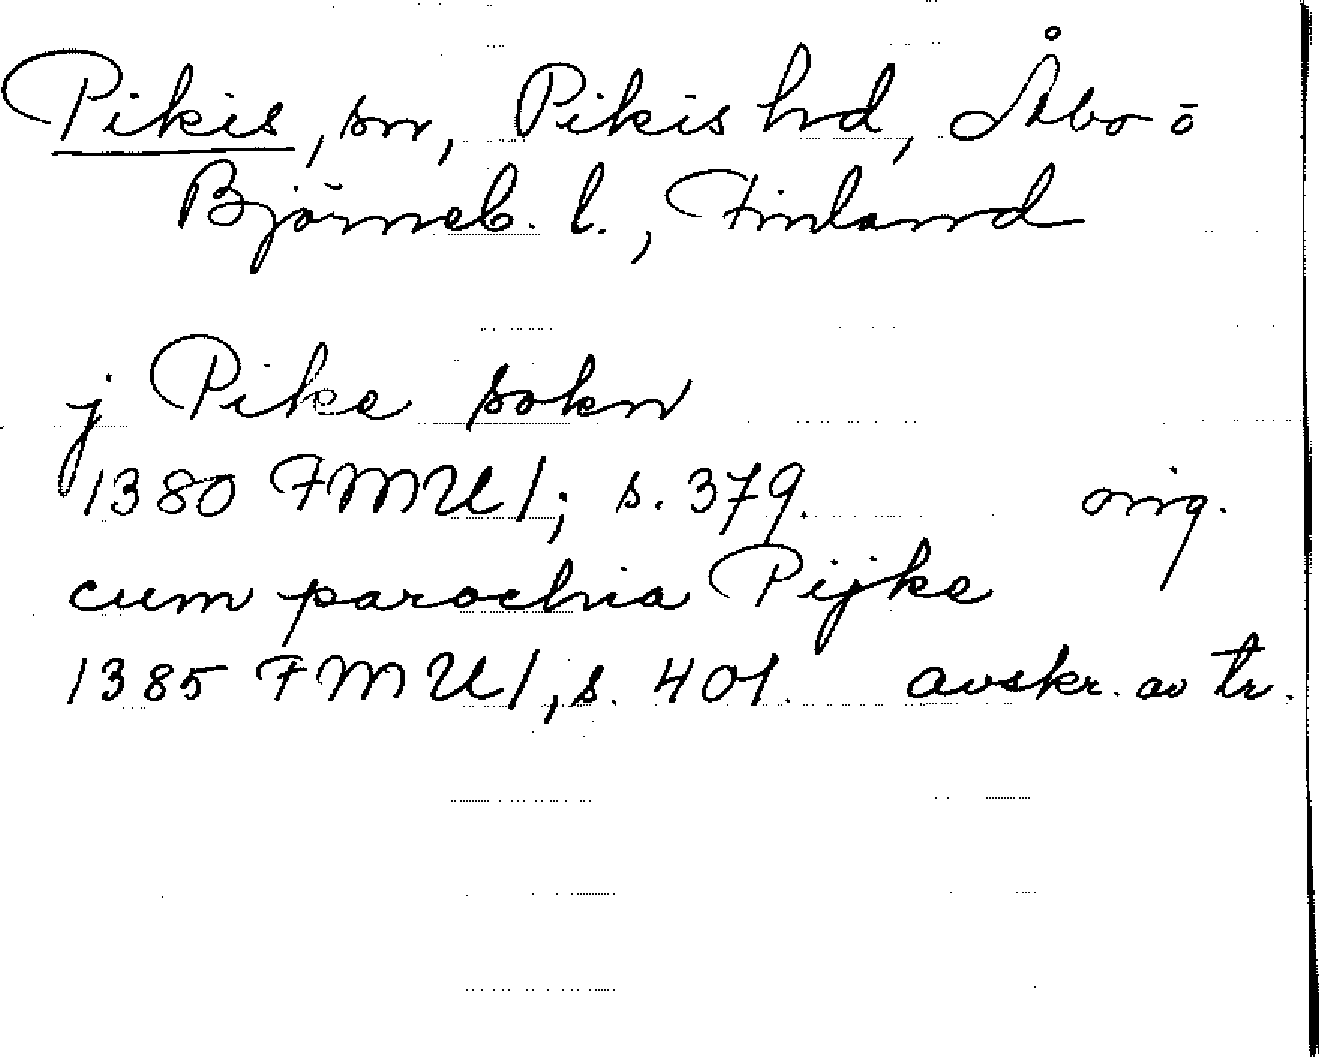 Pikis, sn, Pikis hd, Åbo o
Björneb. l., Finland
j Pike sokn
1380 FMU 1; s. 379. orig.
cum parochia Pijke
1385 FMU 1, s. 401. avskr. av tr.